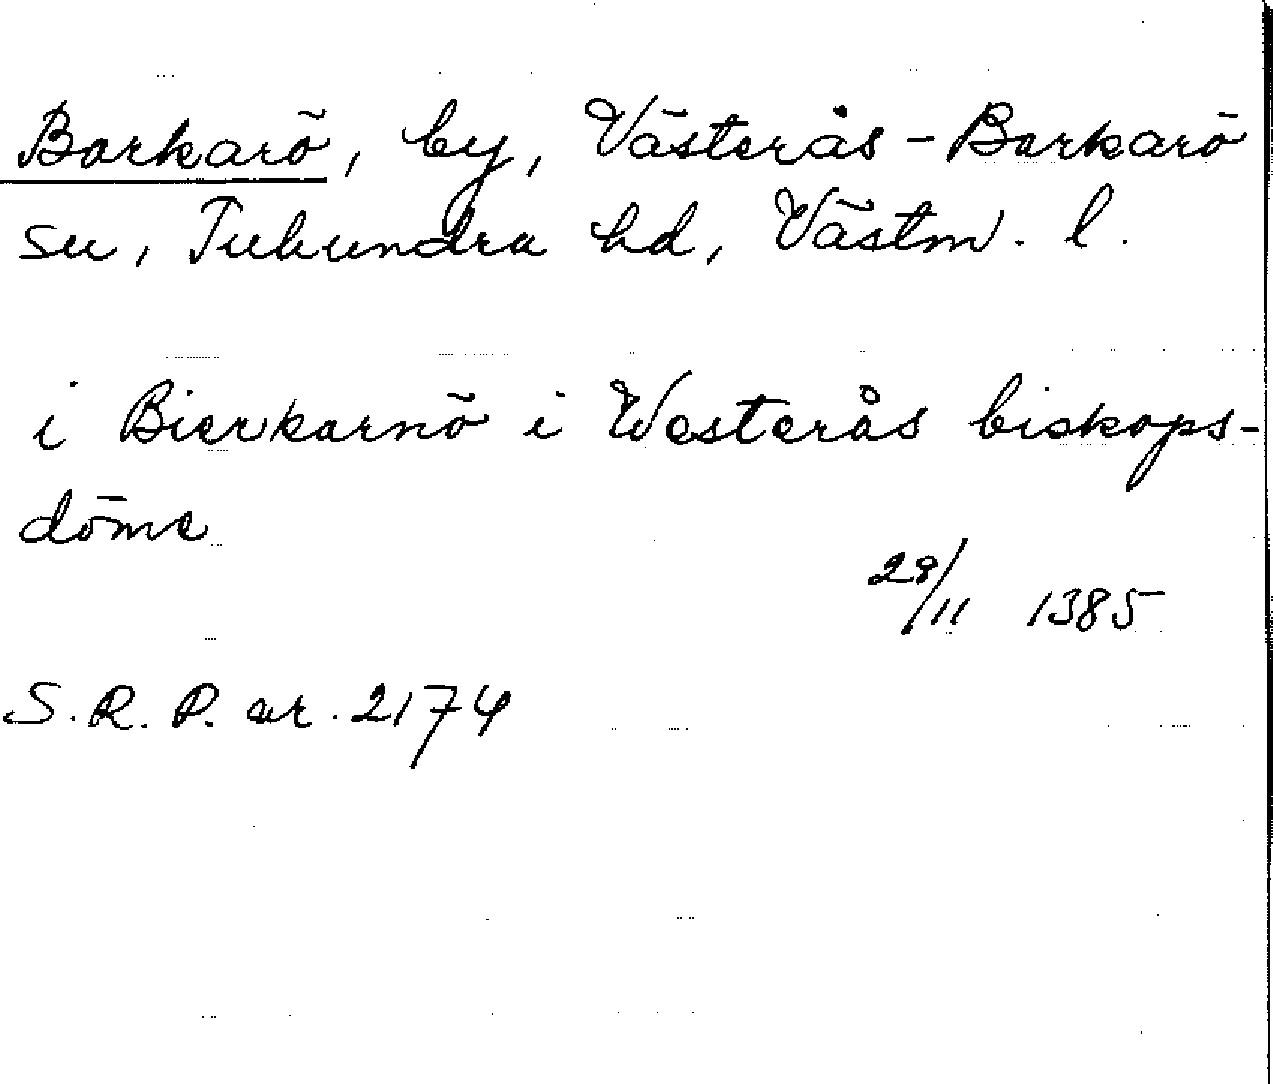 Barkarö, by, Västerås-Barkarö
sn, Tuhundra hd, Västm. l.
i Bierkarnö i Westerås biskops-
döme
28/11 1385
S.R.P. nr. 2174